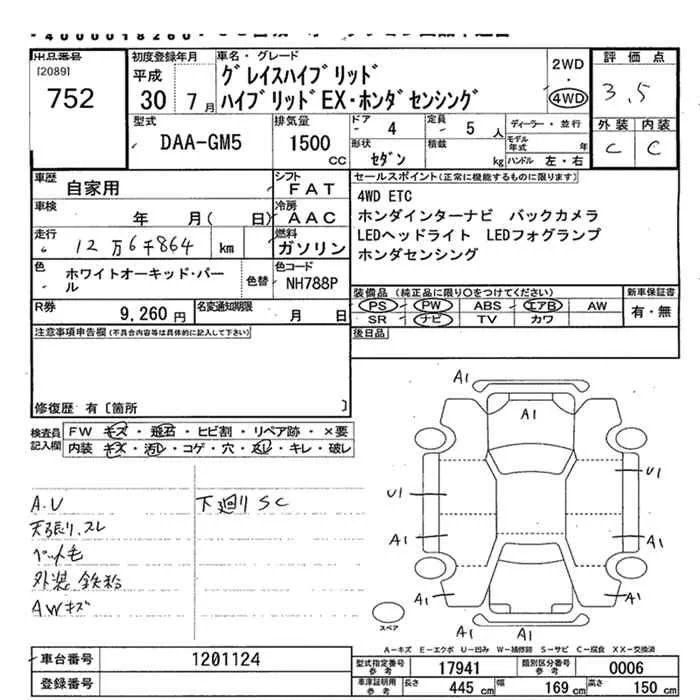 出品番号
[2089]
752
初度登録年月
平成
30 7月
車名・グレード
グレイスハイブリッド
ハイブリッドEX・ホンダセンシング
2WD
・
4WD
評価点
3.5
外装 内装
C C
型式
DAA-GM5
排気量
1500
CC
ドア 4
定員 5 人
形状
セダン
積載
kg
ディーラー・並行
モデル年式 年
ハンドル 左・右
車歴
自家用
シフト
FAT
車検
年 月( 日)
冷房
AAC
走行
12万6千864 km
燃料
ガソリン
色
ホワイトオーキッド・パール
色替
色コード
NH788P
R券
9,260円
名変通知期限
月 日
セールスポイント(正常に機能するものに限ります)
4WD ETC
ホンダインターナビ バックカメラ
LEDヘッドライト LEDフォグランプ
ホンダセンシング
装備品 (純正品に限り○をつけてください)
PS PW ABS エアB AW
SR ナビ TV カワ
新車保証書
有・無
後日品
注意事項申告欄(不具合内容等は具体的に記入して下さい)
修復歴 有〔箇所 〕
検査員記入欄
FW キズ・飛石・ヒビ割・リペア跡・×要
内装 キズ・汚レ・コゲ・穴・スレ・キレ・破レ
A.V
天張り.スレ
ペット毛
外装 鉄粉
AWキズ
下廻りSC
A1
A1
U1
U1
A1
A1
A1
A1
A1
A1
スペア
A-キズ E-エクボ U-凹み W-補修跡 S-サビ C-腐食 XX-交換済
車台番号 1201124
登録番号
型式指定番号参考 17941
類別区分番号参考 0006
車庫証明用参考 長さ 445 cm 幅 169 cm 高さ 150 cm